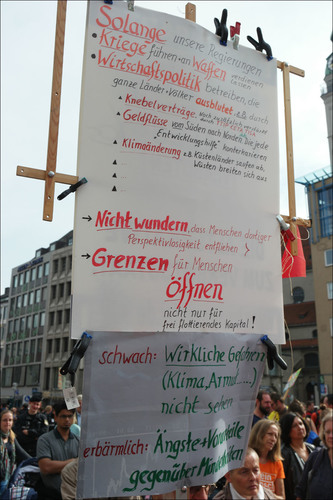 Solange unsere Regierungen
• Kriege führen + an Waffen verdienen
• Wirtschaftspolitik betreiben, die
ganze Länder + Völker ausblutet, z.B. durch
▲ Knebelverträge
▲ Geldflüsse von Süden nach Norden, die jede
"Entwicklungshilfe" konterkarieren
▲ Klimaänderung z.B. Küstenländer saufen ab,
Wüsten breiten sich aus
▲
▲
▲
→ Nicht wundern, dass Menschen dortiger
Perspektivlosigkeit entfliehen
→ Grenzen für Menschen
öffnen
nicht nur für
frei flottierendes Kapital!
schwach: Wirkliche Gefahren
(Klima, Armut.....)
nicht sehen
erbärmlich: Ängste + Vorurteile
gegenüber